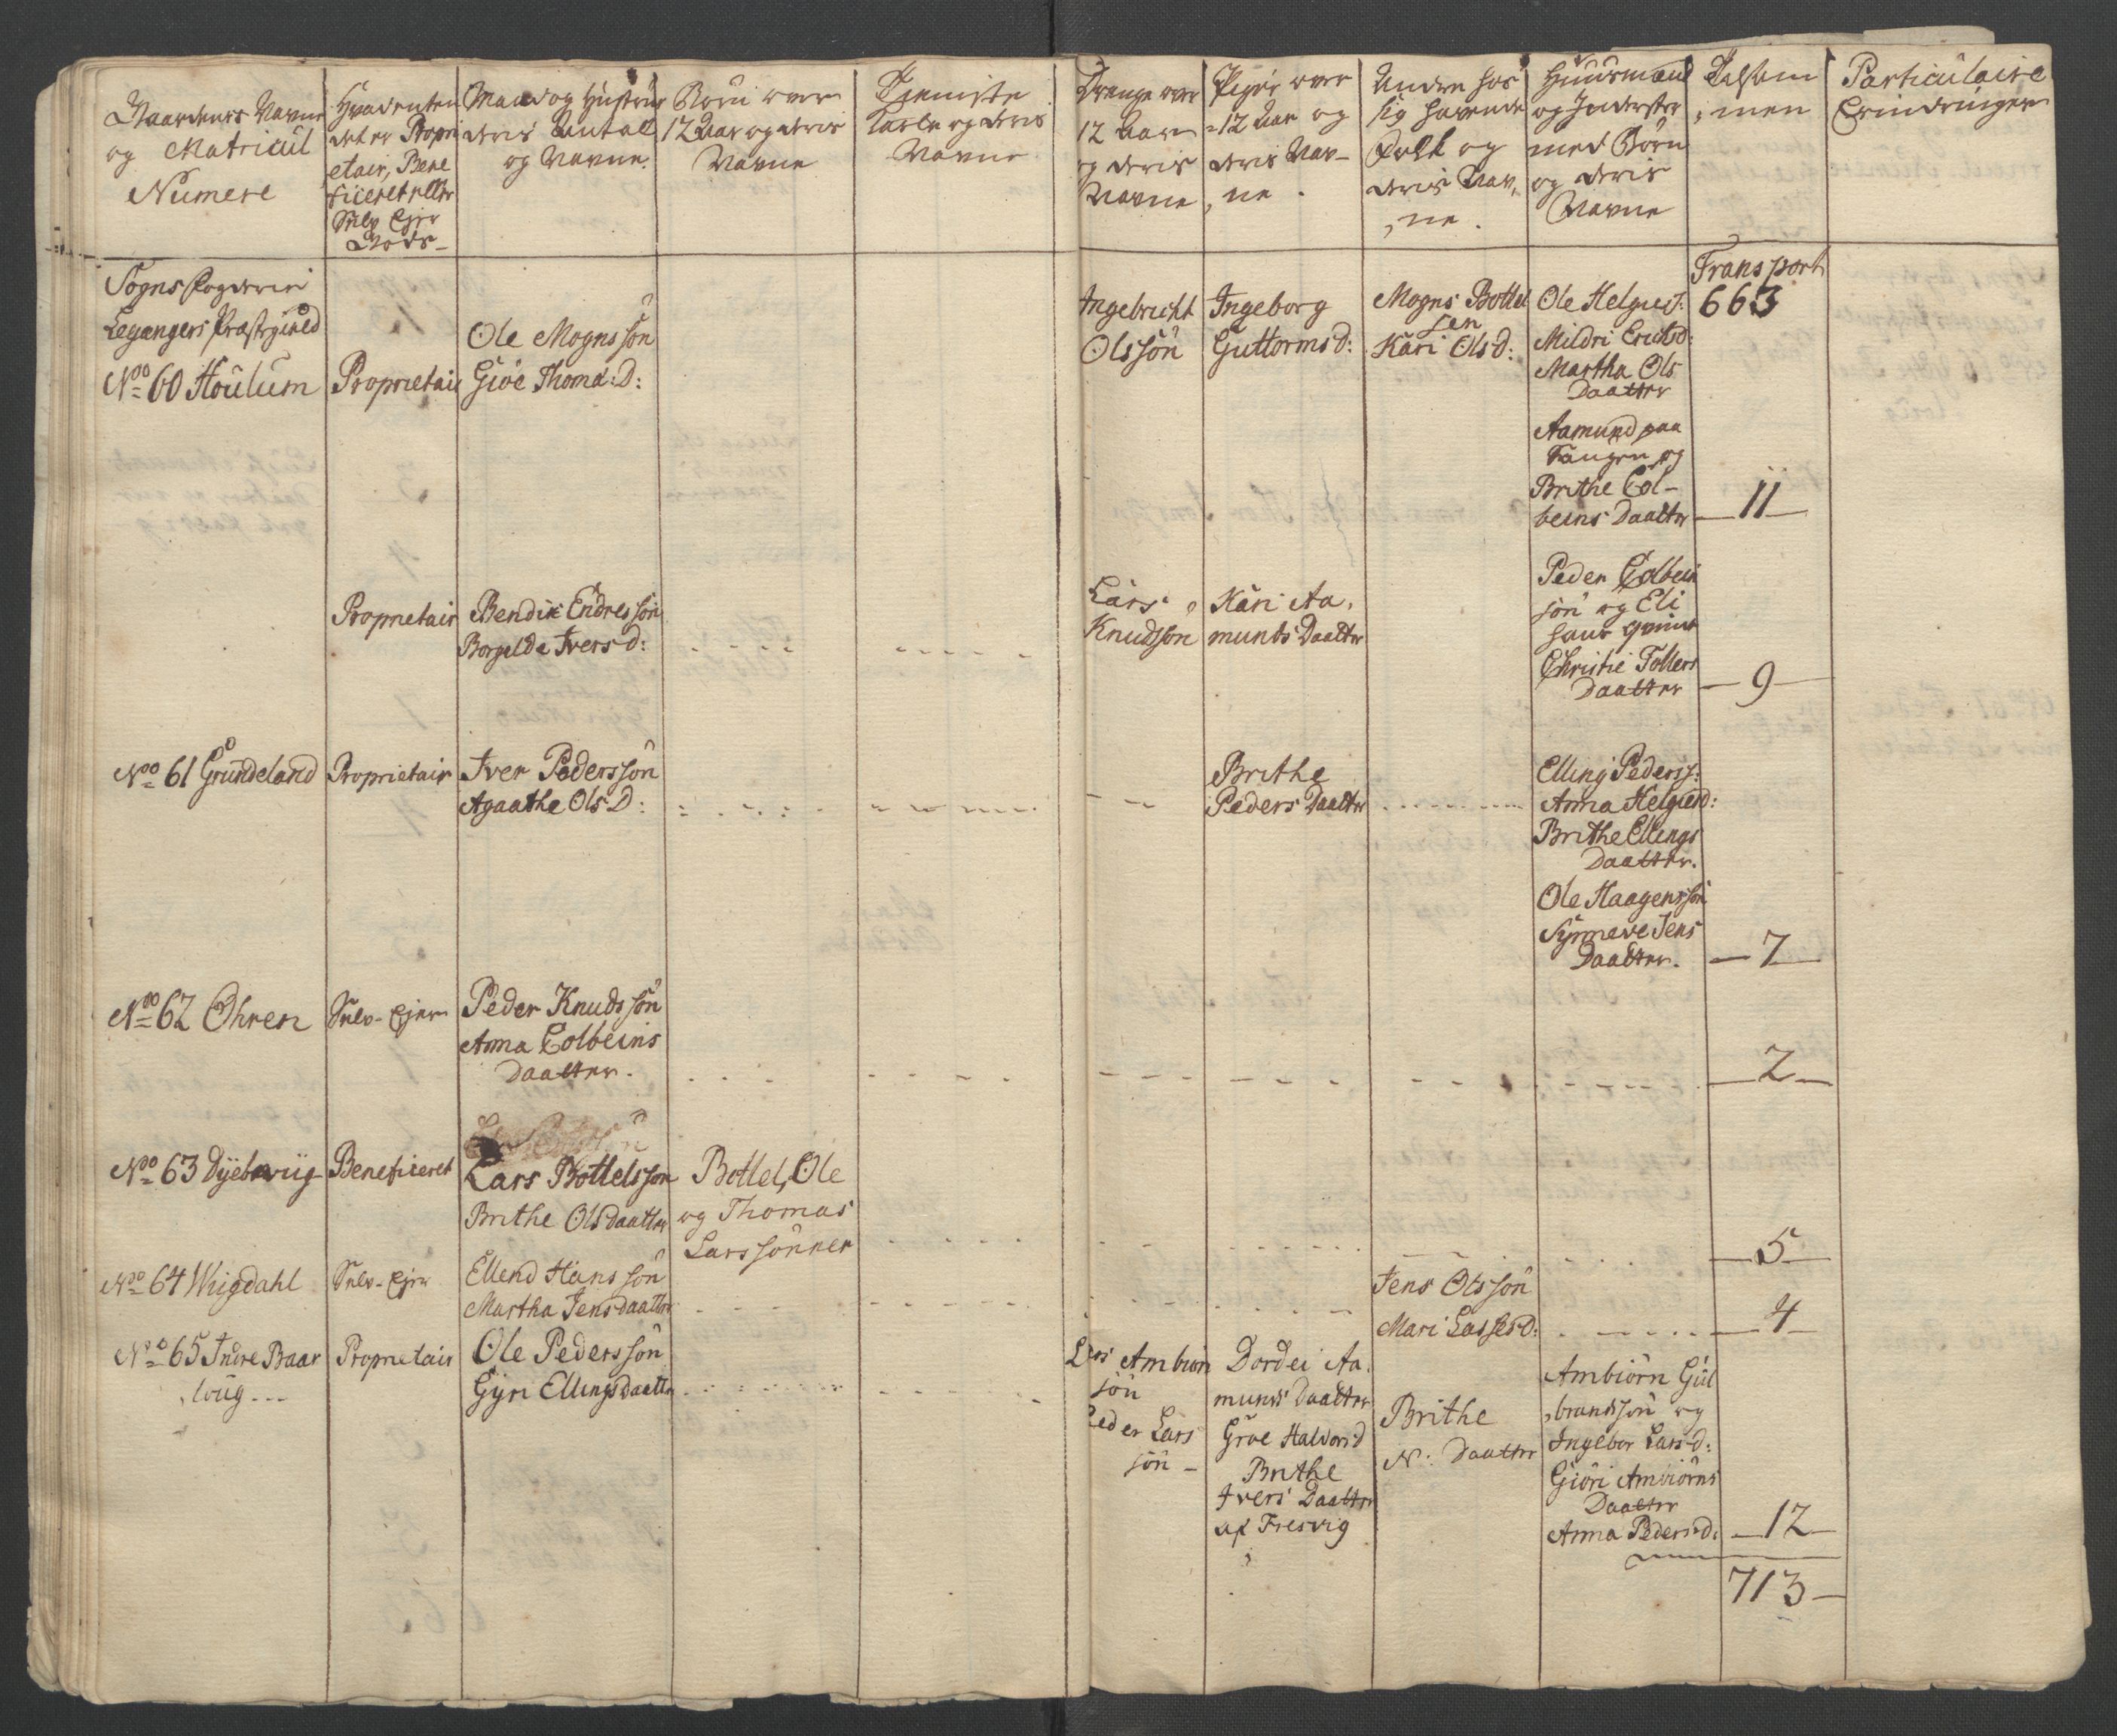 Gaardenes Navne
og Matricul
Numere
Hvad enten
det er Propri
etair, Bene
ficeret eller
Selv Ejer
Gods
Mand og Hustrue
deris Antall
og Navne.
Børn over
12 Aar og deris
Navne
Tieniste
Karle og deris
Navne
Drenge over
12 Aar
og deris
Navne
Piger over
12 Aar og
deris Nav-
ne.
Andre hos
sig havende
Folk og
deris Nav,
ne.
Huusmænd
og Inderster
med Børn
og deris
Navne
Particulaire
Erindringer
Sogns Fogderie
Legangers Præstegield
No 60 Houlum
Proprietair
Ole Mognssön
Giöe Thomæ: D:
Ingebricht
Olssön
Ingeborg
Guttorms d:
Mogns Bottel
sen
Kari Ols d:
Ole Helgies:
Mildri Erichsd:
Martha Ols
Daatter
Aamund paa
Tangen og
Brithe Col-
beins Daatter
Transport
663
11
Proprietair
Bendix Endressön
Borgelde Ivers d:
Lars
Knudssön
Kari Aa,
munds Daatter
Peder Colbein
sön og Eli
hans qvinde
Christie Tollers
Daatter
9
No 61 Grundeland
Proprietair
Iver Pederssön
Agaathe Ols D:
Brithe
Peders Daatter
Elling Pederss:
Anna Helgiesd:
Brithe Ellings
Daatter.
Ole Haagenssön
Synneve Jens
Daatter.
7
No 62 Ohren
Selv-Ejer
Peder Knudssön
Anna Colbeins
Daatter.
2
No 63 Dyebwiig
Beneficeret
Lars Bottelssön
Brithe Olsdaatter
Bottel, Ole
og Thomas
Lars sönner
5
No 64 Wiigdahl
Selv-Ejer
Ellend Hanssön
Martha Jensdaatter
Jens Olssön
Mari Lasses d:
4
No 65 Indre Baar
,toug
Proprietair
Ole Pederssön
Gyri Ellingsdaatter
Lars Ambiörn
sön
Peder Lars
sön -
Dordei Aa,
munds Daatter
Groe Halvors d
Brithe
Ivers Daatter
af Fresvig
Brithe
N: Daatter
Ambiörn Gul
,brandssön og
Ingebor Lars d:
Giöri Ambiörns
Daatter
Anna Peders d:
12
713